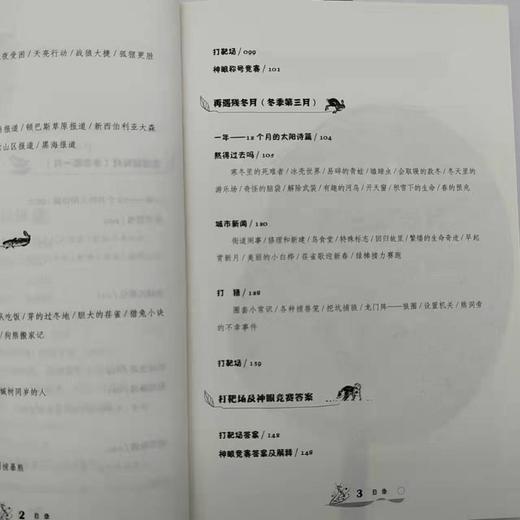 夜受困 / 天亮行动 / 战狼大捷 / 狐狸更胜
报道 / 顿巴斯草原报道 / 新西伯利亚大森
山区报道 / 黑海报道
人吃饭 / 芽的过冬地 / 胆大的荏雀 / 猎兔小诀
狗熊搬家记
城树同岁的人
2 目录
打靶场 / 099
神眼称号竞赛 / 101
再遇残冬月（冬季第三月）
一年——12 个月的太阳诗篇 / 104
熬得过去吗 / 105
寒冬里的死难者 / 冰壳世界 / 易碎的青蛙 / 瞌睡虫 / 会取暖的款冬 / 冬天里的
游乐场 / 奇怪的脑袋 / 解除武装 / 有趣的河鸟 / 开天窗 / 积雪下的生命 / 春的预兆
城市新闻 / 120
街道闹事 / 修理和新建 / 鸟食堂 / 特殊标志 / 回归故里 / 繁缕的生命奇迹 / 早起
赏新月 / 美丽的小白桦 / 荏雀歌迎新春 / 绿棒接力赛跑
打 猎 / 128
圈套小常识 / 各种捕兽笼 / 挖坑捕狼 / 龙门阵——狼圈 / 设置机关 / 熊洞旁
的不幸事件
打靶场 / 139
打靶场及神眼竞赛答案
打靶场答案 / 142
神眼竞赛答案及解释 / 148
3 目录